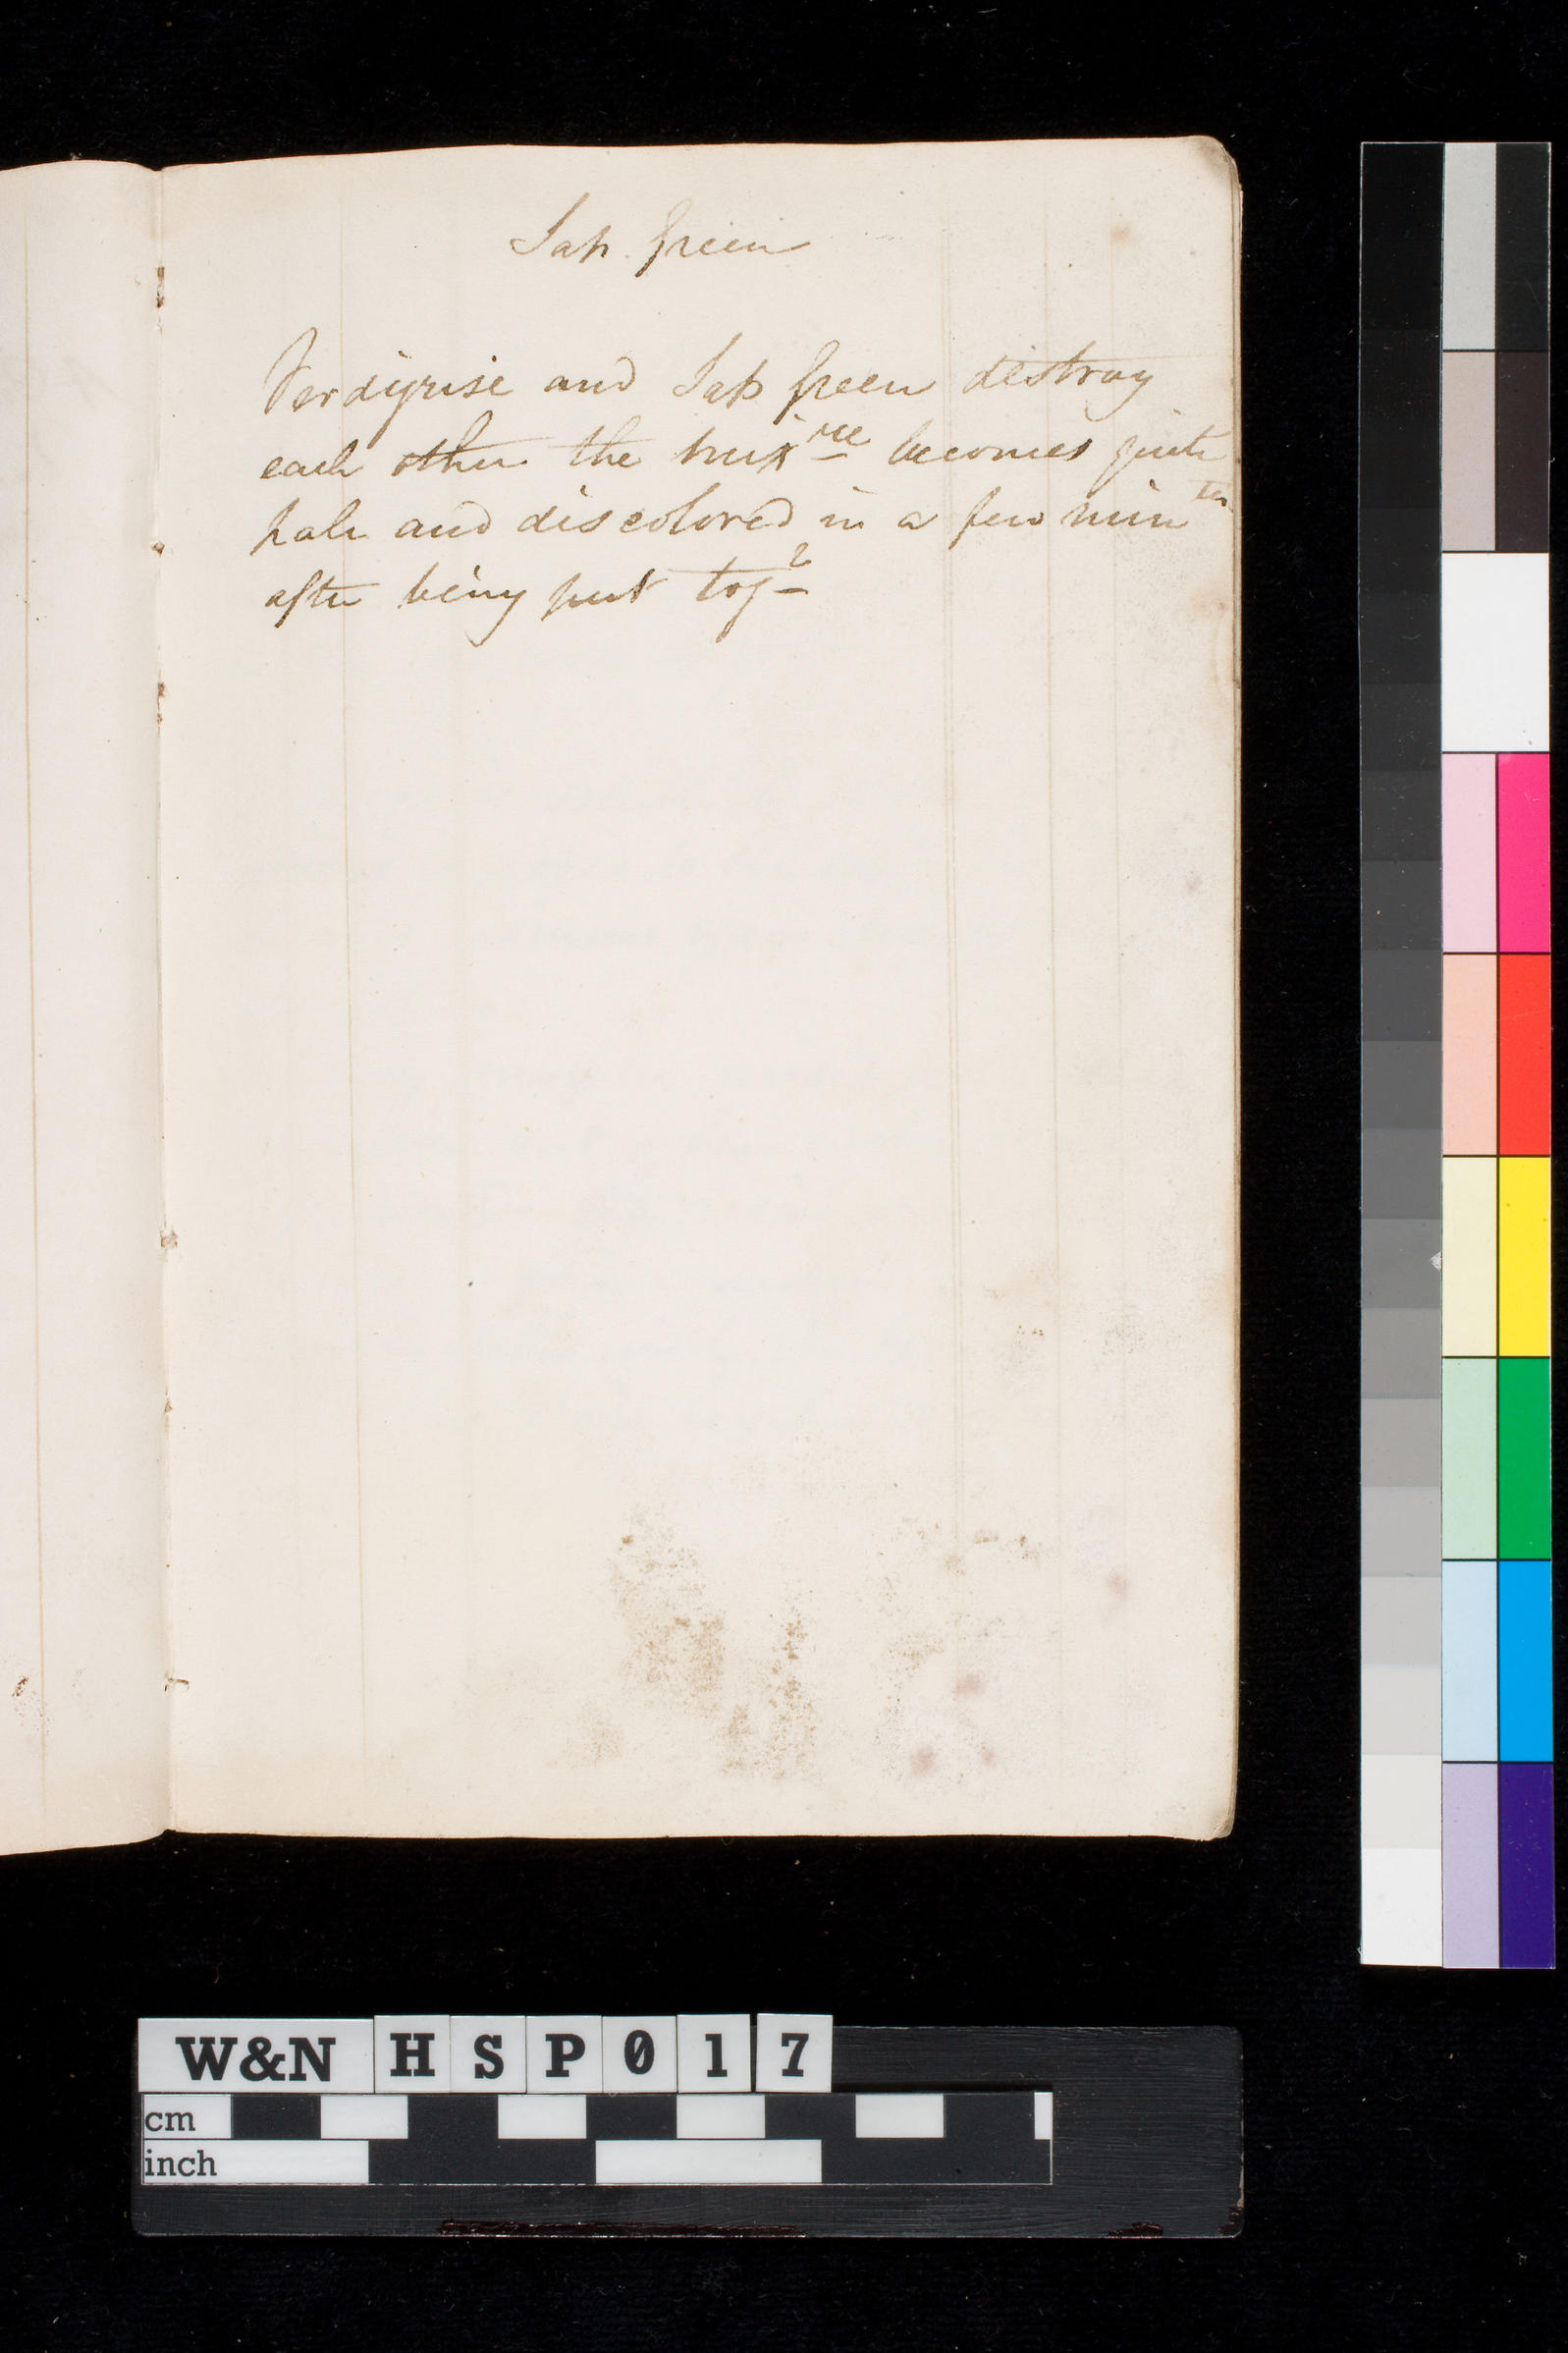 Sap Green
Verdigrise and Sap Green destroy
each other the mixre becomes quite
pale and discolored in a few mintes
after being put togr
W&N HSP017
cm
inch